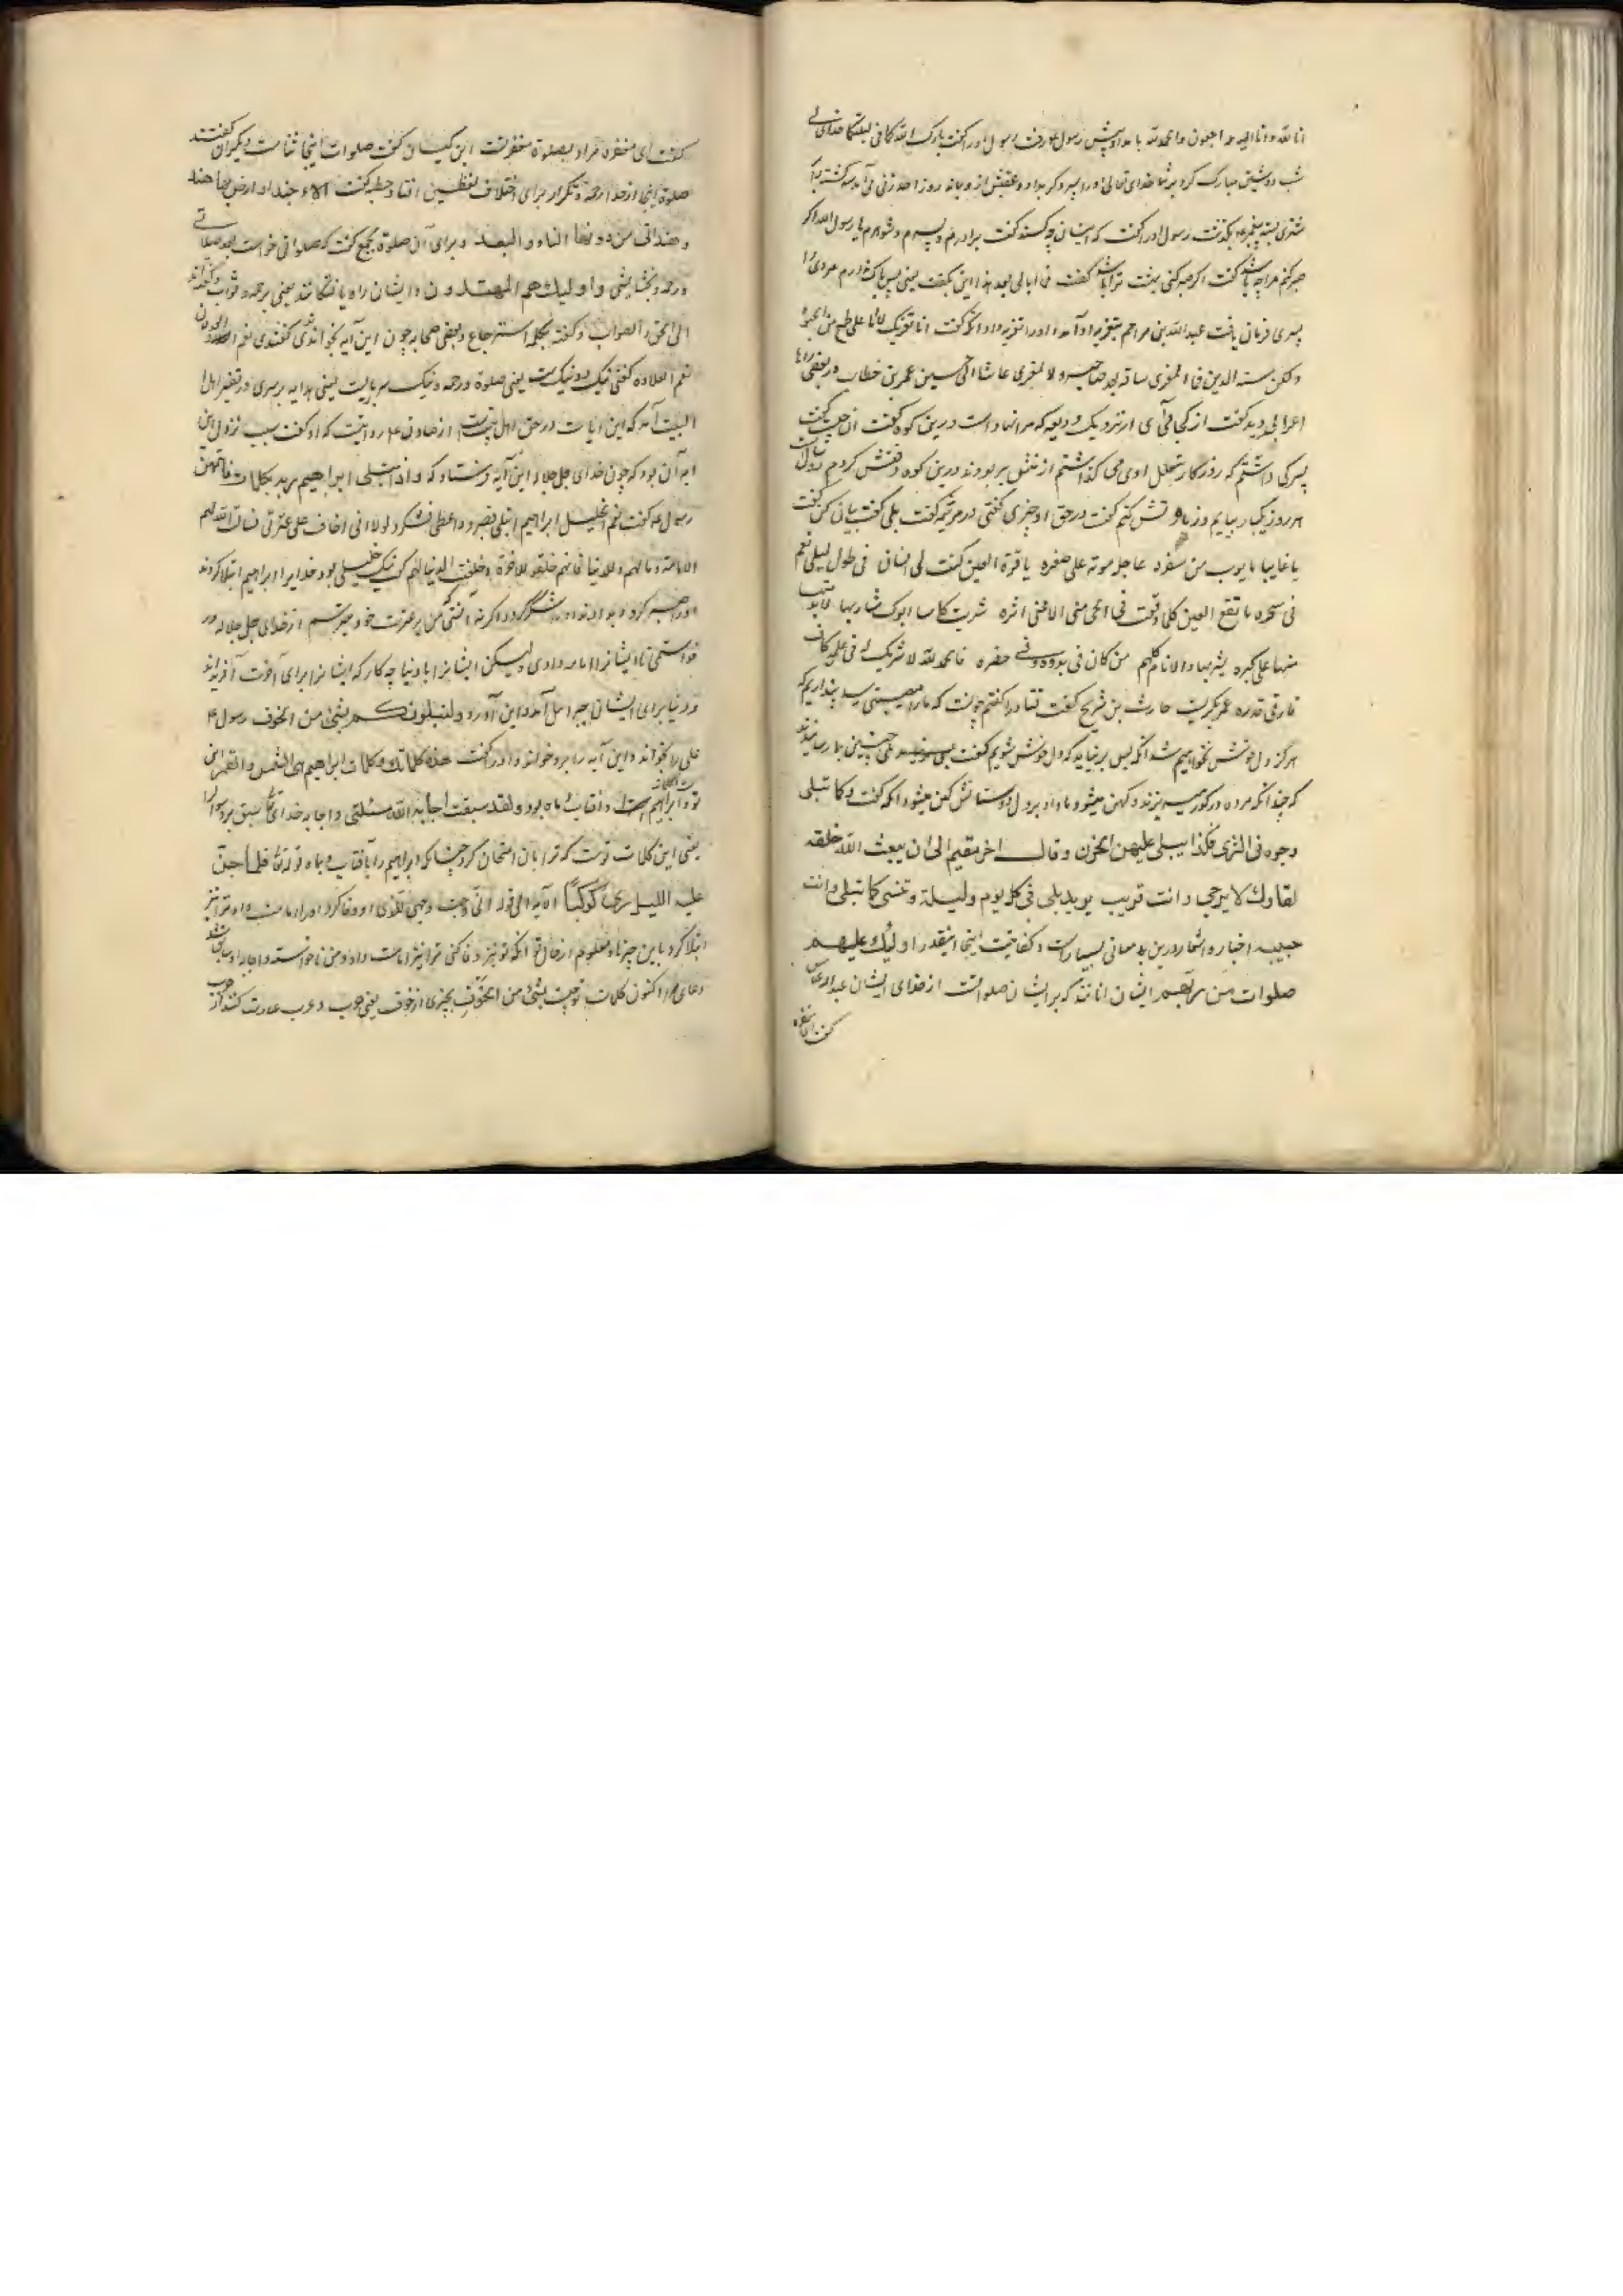 انا لله وانا اليه راجعون والحمد لله بامداد پیش رسول ع رفت رسول اورا گفت بارک الله لکما فی لیلتکما خدای
شب دوشین مبارک کرد بر شما خدای تعالی اورا پسر دیگر بداد روز احد زنی می آمد سه کشته بر
شتری بسته پیغمبر ع بگذشت رسول اورا گفت که اینان چه کسند گفت برادرم و پسرم و شوهرم یا رسول الله اگر
صبر کنم مرا چه باشد گفت اگر صبر کنی بهشت ترا باشد گفت فما ابالی بعد هذا این بگفت یعنی پس باک ندارم مردی را
پسری فرمان یافت عبدالله بن مراحم بتعزیه او آمد اورا تعزیه داد آنگه گفت انا نعزیک لا انا علی طمع من الحیوة
ولکن سنة الدین فما المعزی بباق بعد صاحبه ولا المعزی عاشا الی حین عمر بن خطاب در بعضی راه
اعرابی دید گفت از کجا می آی از نزدیک ودیعه که مرا نهاده است درین کوه گفت آن چیست گفت
پسرکی داشتم که روزگار بتعلل اوی می گذاشتم از منش بربودند درین کوه دفنش کردم
هر روز یکبار بیایم و زیارتش کنم گفت در حق او چیزی گفتی در مرثیه گفت بلی گفت بیان کن گفت
یا غایبا ما یؤب من سفره عاجله موته علی صغره یا قرة العین کنت لی انسا فی طول لیلی نعم
فی سحره ما تقع العین کلما وقعت فی الحی منی الا علی اثره شربت کاسا ابوک شاربها لابد
منها علی کبره یشربها والانام کلهم من کان فی بدوه وفی حضره فالحمد لله لا شریک له فی علمه کان
قدره عمر بگریست حارث بن شریح گفت قتاده را گفتم چونست که ما را مصیبتی رسد پنداریم که
هرگز دل خوش نخواهیم شد آنگه بس برنیاید که دل خوش شویم گفت بلی چنین بما رسانیدند
که چندانکه مرده در گور میریزند و کهن میشود با او بر دل دوستانش کهن میشود آنگه گفت وکما تبلی
وجوه فی الثری فکذا یبلی علیهن الحزن وقال اخر مقیم الی ان یبعث الله خلقه
لقاؤک لا یرجی وانت قریب یزید بلی فی کل یوم ولیلة وتنسی کما تبلی وانت
حبیب اخبار و اشعار درین معانی بسیار است و کفایت اینجا اینقدر اولئک علیهم
صلوات من ربهم ایشان آنانند که بر ایشان صلواتست از خدای ایشان عبدالله عباس
گفت ای مغفره
گفت ای مغفره مراد بصلوة مغفرتست ابن کیسان گفت صلوات اینجا ثناست دیگران گفتند
صلوة اینجا از خدا رحمة و تکرار برای اختلاف لفظین افتاد حطیئه گفت الا حبذا هند وارض بها هند
وهند اتی من دونها النای والبعد و برای آن صلوة بجمع گفت که صلواتی خواست بعد صلاتی
ورحمة و بخشایشی واولئک هم المهتدون و ایشان راه یافتگانند یعنی برحمه و ثواب
الی الحق والصواب و گفتند بکلمه استرجاع و بعضی صحابه چون این آیه بخواندندی گفتندی نعم العدلان
نعم العلاوه گفتی نیک دو نیک است یعنی صلوة ورحمه و نیک سربارست یعنی هدایه بر سری در تفسیر اهل
البیت آمد که این ایات در حق اهل بیت است از صادق ع روایتست که او گفت سبب نزول این
آیه آن بود که چون خدای جل جلاله این آیه فرستاد که واذ ابتلی ابراهیم ربه بکلمات فاتمهن
رسول ع گفت نعم الخلیل ابراهیم ابتلی فصبر واعطی فشکر ولولا انی اخاف علی عترتی لسالت الله لهم
الامامة ومالهم وللدنیا فانهم خلقوا للاخرة وخلقت الدنیا لهم گفت نیک خلیلی بود خدایرا ابراهیم ابتلا کردند
اورا صبر کرد و بدادند او را شکر کرد و اگر نه آنستی که من بر عترت خود میترسم از خدای جل جلاله در
خواستمی تا ایشانرا امامه دادی لیکن ایشانرا با دنیا چه کار که ایشانرا برای آخرت آفریدند
و دنیا برای ایشان جبرائیل آمد و این آورد ولنبلونکم بشیء من الخوف رسول ع
علی را بخواند و این آیه را برو خواند و اورا گفت هذه کلماتک وکلمات ابراهیم هی الشمس والقمر این
تو و ابراهیم را آفتاب و ماه بود ولقد سبقت اجابة الله مسئلتی واجابه خدای تع سبق برد سوال مرا
یعنی این کلمات تست که ترا بآن امتحان کرد چنانکه ابراهیم را بآفتاب و ماه قوله تع فلما جن
علیه اللیل رای کوکبا الآیه الی قوله انی وجهت وجهی للذی او وفا کرد اورا امامت داد و ترا نیز
ابتلا کرد باین چیزها و معلوم از حال تو آنکه تو نیز وفا کنی ترا نیز امامت داد و من ناخواسته واجابه او سابق شد
دعای مرا اکنون کلمات تو چیست بشیء من الخوف بچیزی از خوف یعنی حرب و عرب عبارت کنند از حرب